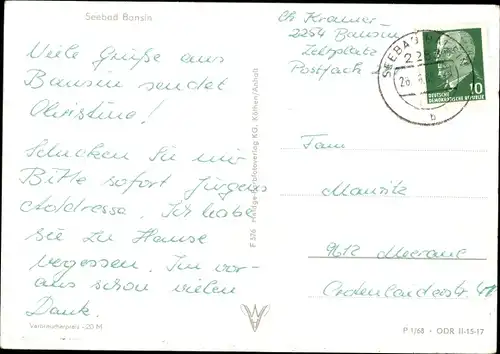 Seebad Bansin
Viele Grüße aus
Bansin sendet
Christine!
Schicken Sie mir
Bitte sofort Jürgens
Addressa. Ich habe
sie zu Hause
vegessen. Im vor-
aus schon vielen
Dank.
Verbraucherpreis -,20 M
F 576 Heldge-Farbfotoverlag KG, Köthen/Anhalt
Ch Kramer
2254 Bansin
Zeltplatz
Postfach
SEEBAD
DEUTSCHE
DEMOKRATISCHE REPUBLIK
10
b
Fam
Mauritz
9612 Meerane
Crotenlaiderstr.
P 1/68 • ODR II-15-17